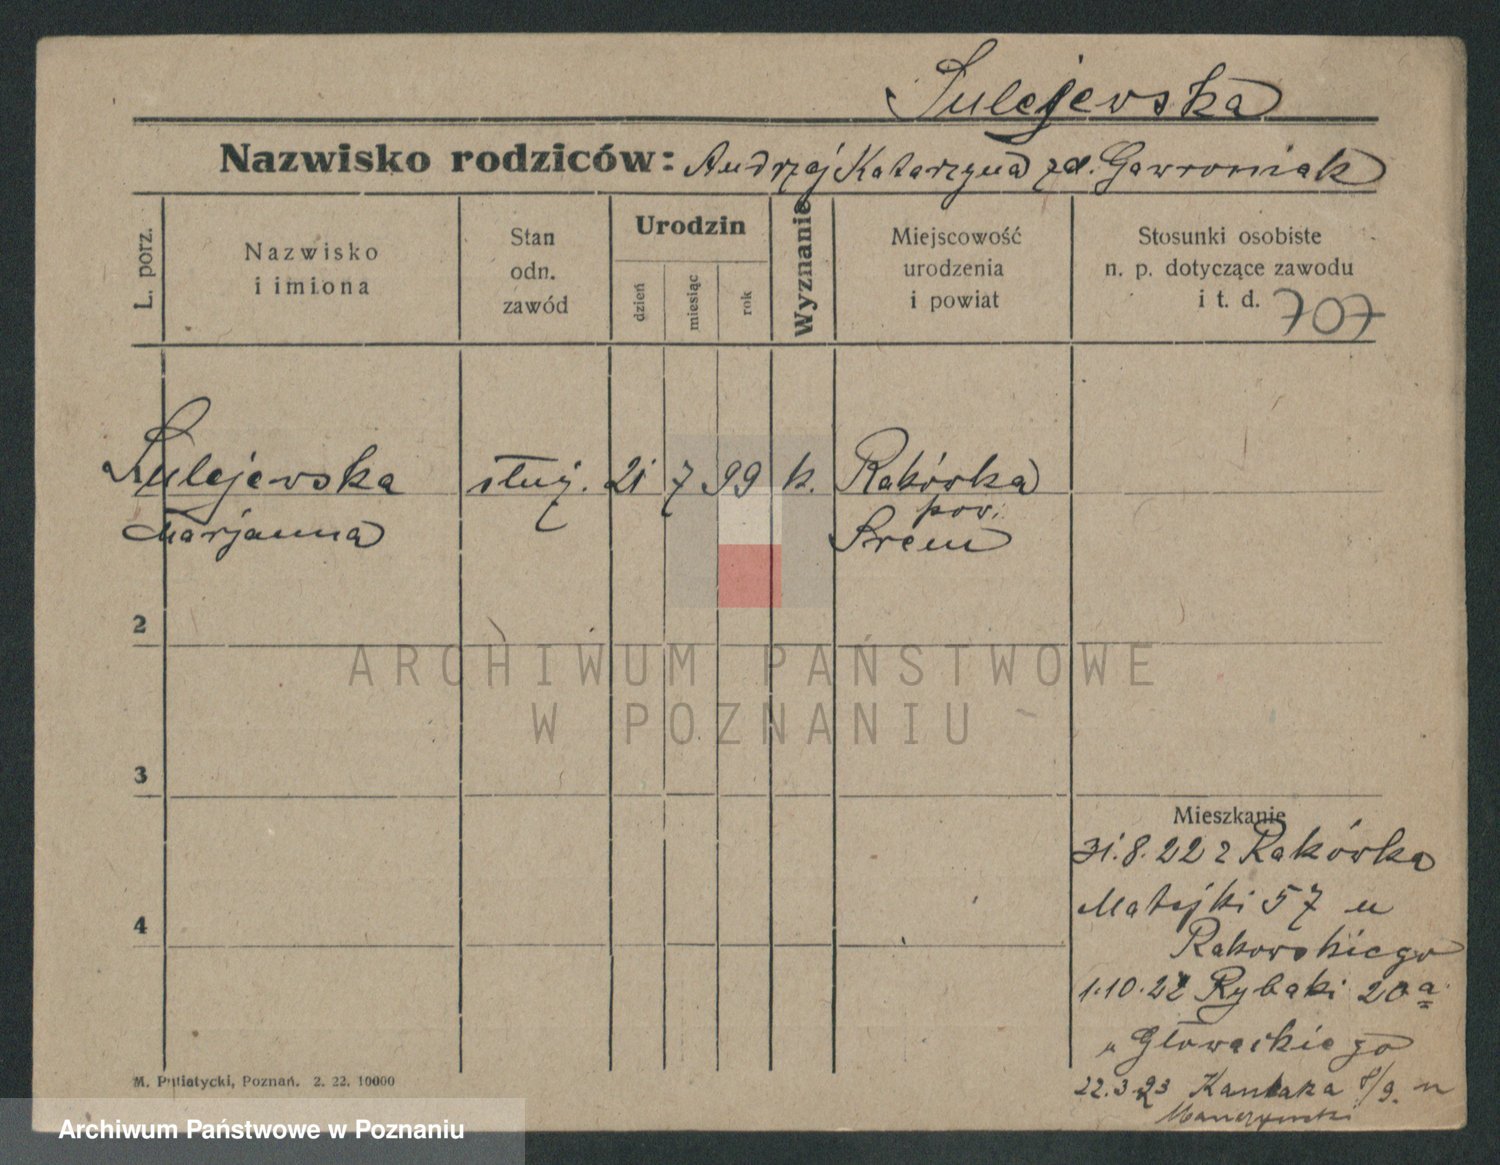 Sulejewska
Nazwisko rodziców: Andrzej Katarzyna zd. Gawroniak
L. porz.
Nazwisko
i imiona
Stan
odn.
zawód
Urodzin
dzień
miesiąc
rok
Wyznanie
Miejscowość
urodzenia
i powiat
Stosunki osobiste
n. p. dotyczące zawodu
i t. d. 707
Sulejewska służ. 21 7 99 k. Rakówka
pow.
Marjanna Śrem
2
ARCHIWUM PAŃSTWOWE
W POZNANIU
3
Mieszkanie
31.8.22 z Rakówka
Matejki 57 u
4
Rakowskiego
1.10.22 Rybaki 20a
u Głowackiego
M. Putiatycki, Poznań. 2. 22. 10000
22.3.23 Kantaka 8/9. u
Archiwum Państwowe w Poznaniu